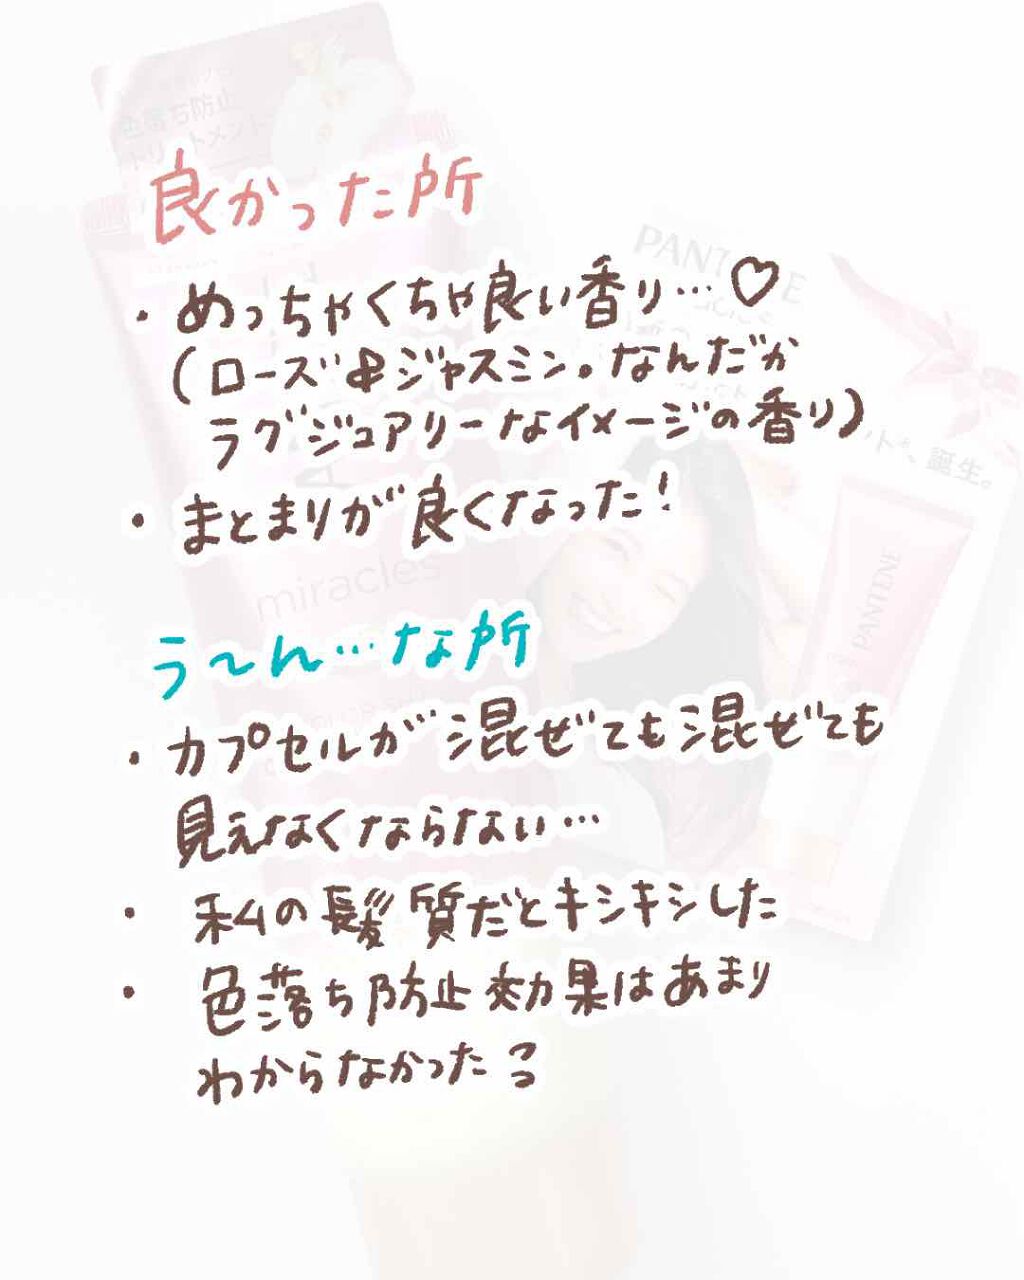 色落ち防止
トリートメント
良かった所
PANTENE
・めっちゃくちゃ良い香り…♡
(ローズ&ジャスミン。なんだか
ラグジュアリーなイメージの香り)
誕生。
・まとまりが良くなった!
miracles
PANTENE
う〜ん…な所
・カプセルが混ぜても混ぜても
見えなくならない…
・私の髪質だとキシキシした
・色落ち防止効果はあまり
わからなかった